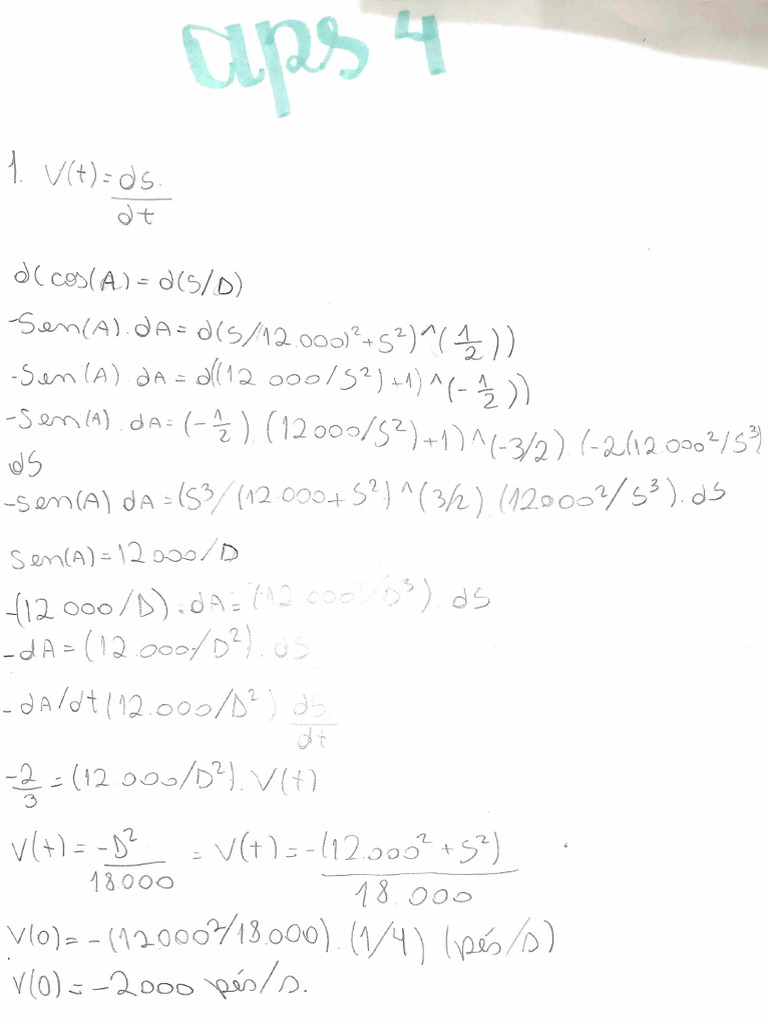 aps 4
1. V(t) = ds
dt
d(cos(A) = d(S/D)
-Sen(A). dA = d(S/12.000)²+S²)^(1/2))
-Sen(A) dA = d((12 000/S²)+1)^(-1/2))
-Sen(A). dA = (-1/2) (12000/S²)+1)^(-3/2) (-2(12.000²/S³)
ds
-sen(A) dA = (S³/(12.000+S²)^(3/2) (12000²/S³).ds
Sen(A) = 12 000/D
-(12 000/D).dA = (12 000²/D³). ds
-dA = (12.000/D²). ds
-dA/dt (12.000/D²) ds
dt
-2/3 = (12.000/D²). V(t)
V(t) = -D²/18.000 = V(t) = -(12.000² + S²)/18.000
V(0) = -(12000²/18.000). (1/4) (pés/s)
V(0) = -2000 pés/s.